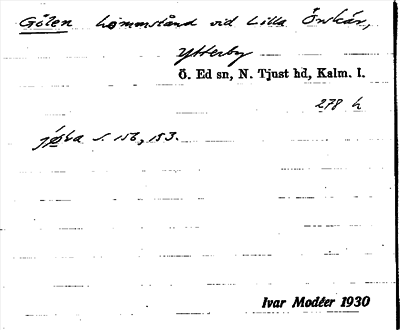 Gölen hommstånd vid Lilla Önskär,
Ytterby
Ö. Ed sn, N. Tjust hd, Kalm. l.
278 h
jfska s. 156, 153.
Ivar Modéer 1930